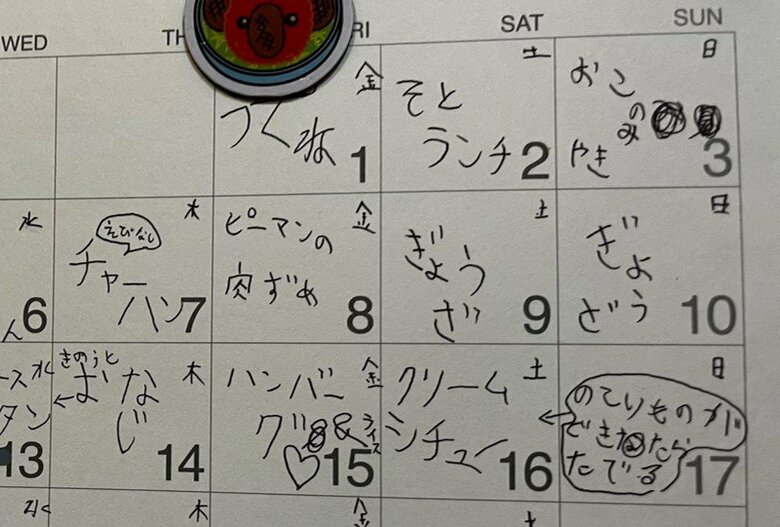 WED TH RI SAT SUN
金
つくね
1
土
そと
ランチ
2
日
おこ
のみ
やき
3
水
ん
6
木
えびなし
チャー
ハン
7
金
ピーマンの
肉ずめ
8
土
ぎょう
ざ
9
日
ぎょう
ざ
10
水
ース
タン
13
木
きのうと
←おな
じ
14
金
ハンバー
グ&ライス
♡
15
土
クリーム
シチュー
16
日
←のこりものが
できたら
たべる
17
水 木 金 土